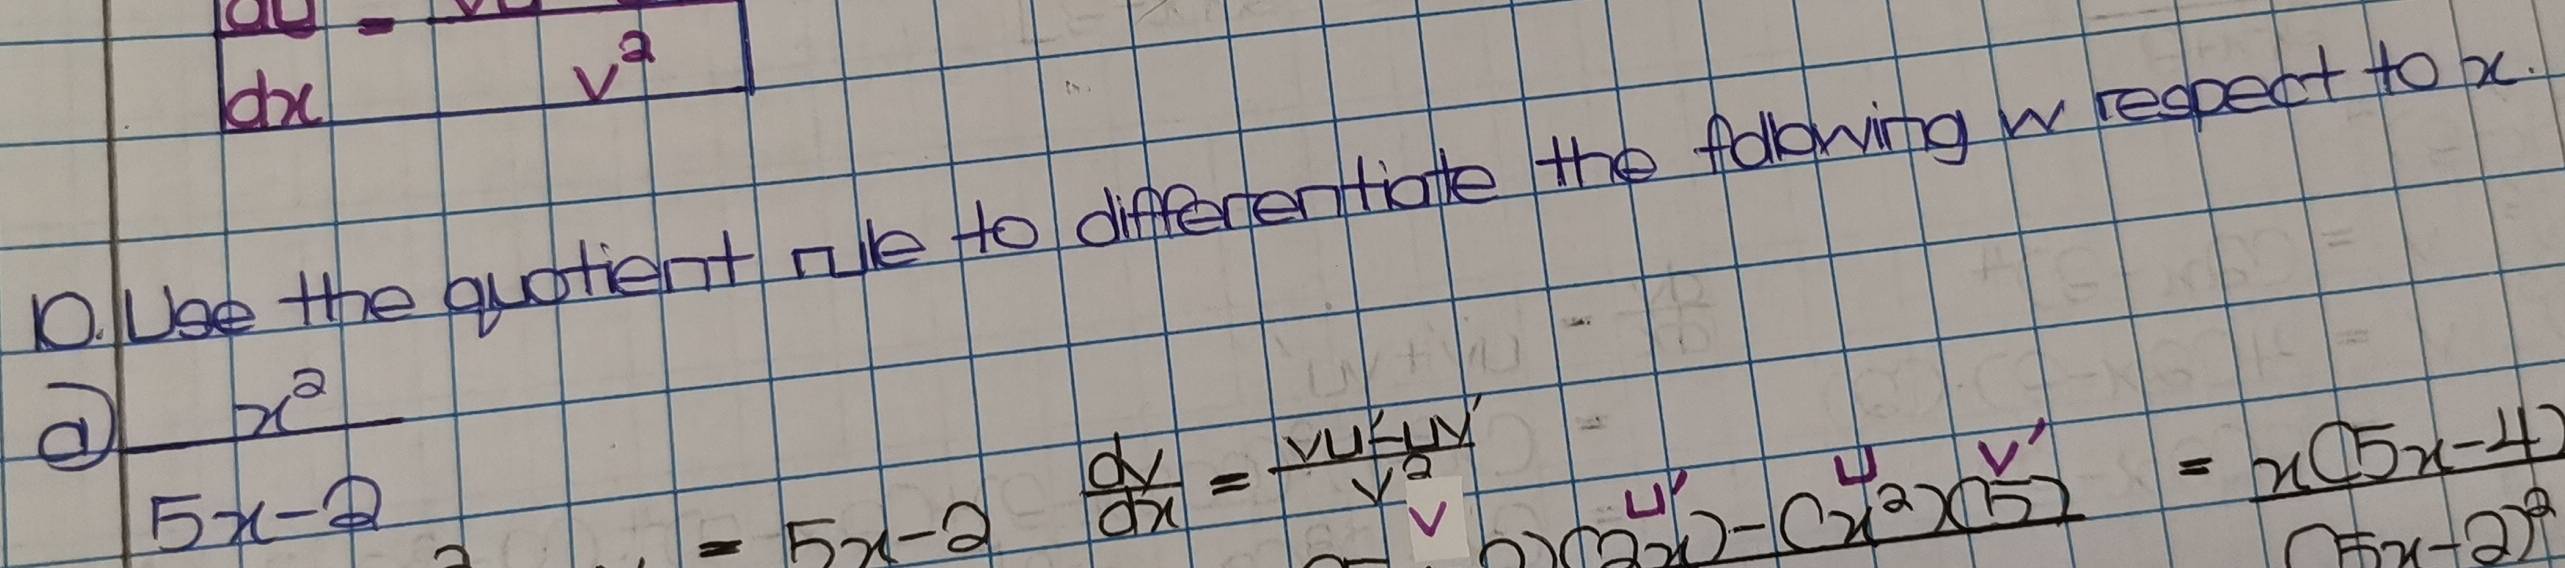 dx v²
10. Use the quotient rule to differentiate the following w respect to x.
a) x²
5x-2
dy/dx = vu'-uv'/v²
v u' u v'
= 5x-2 )(2x)-(x²)(5) = x(5x-4)
(5x-2)²